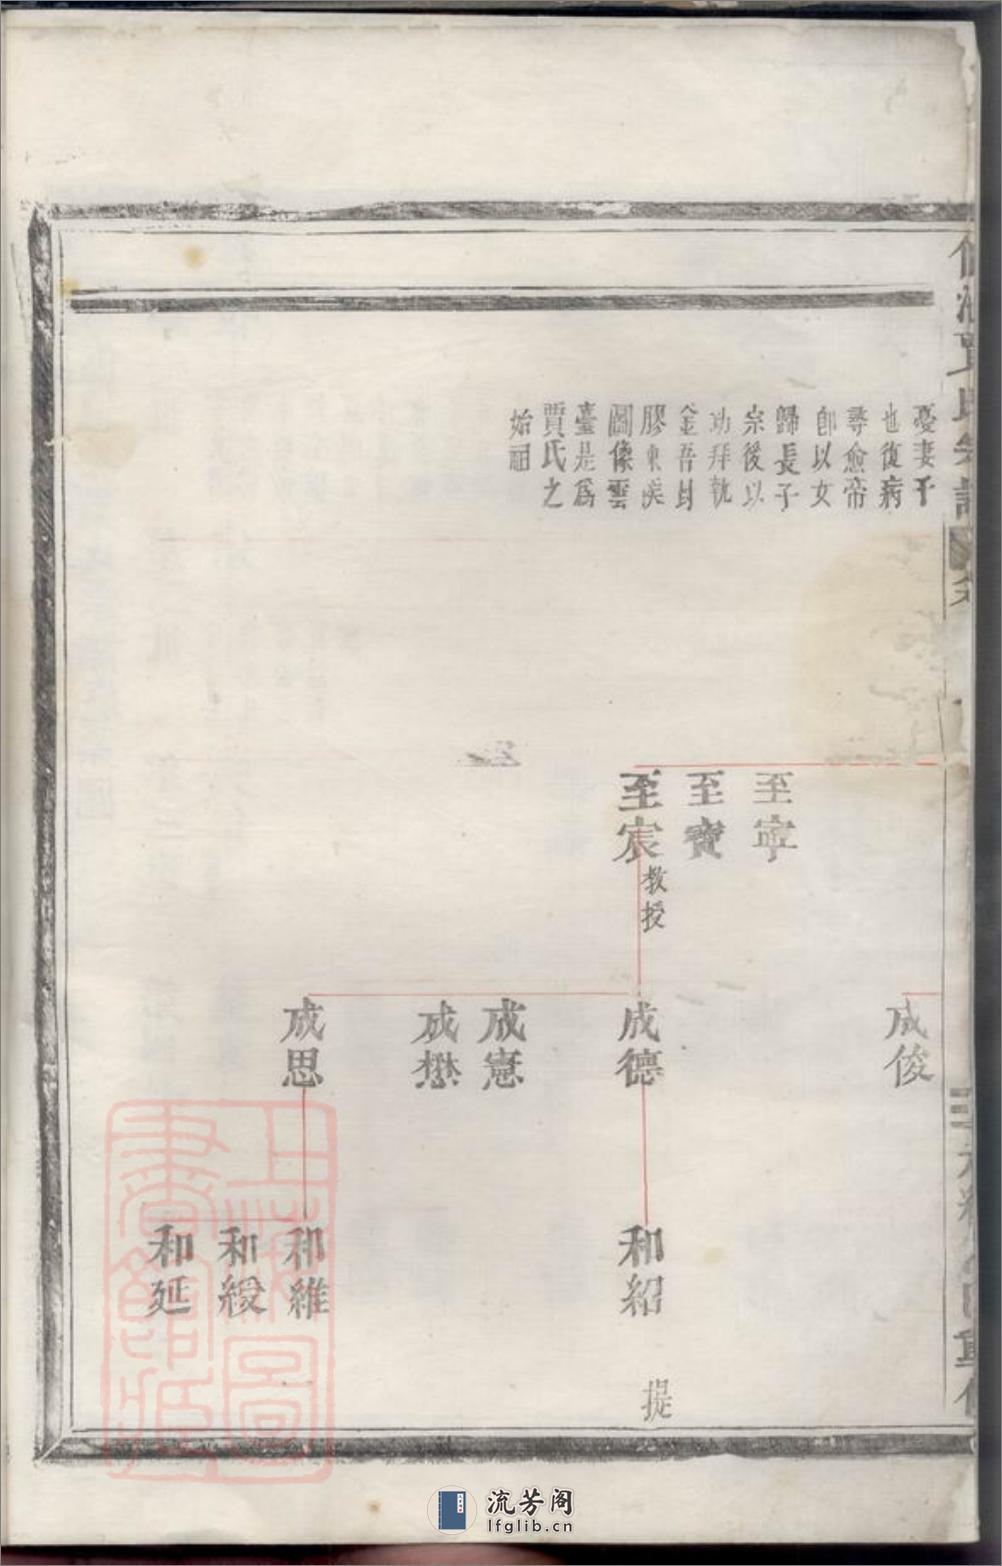 憂妻子
也復病
尋愈帝
卽以女
歸長子
宗後以
功拜執
金吾封
膠東侯
圖像雲
臺是爲
賈氏之
始祖
至寧
至寶
至宸
教授
成俊
成德
成憲
成懋
成思
和紹
提
和維
和綬
和延
上海圖書館藏
流芳阁
lfglib.cn